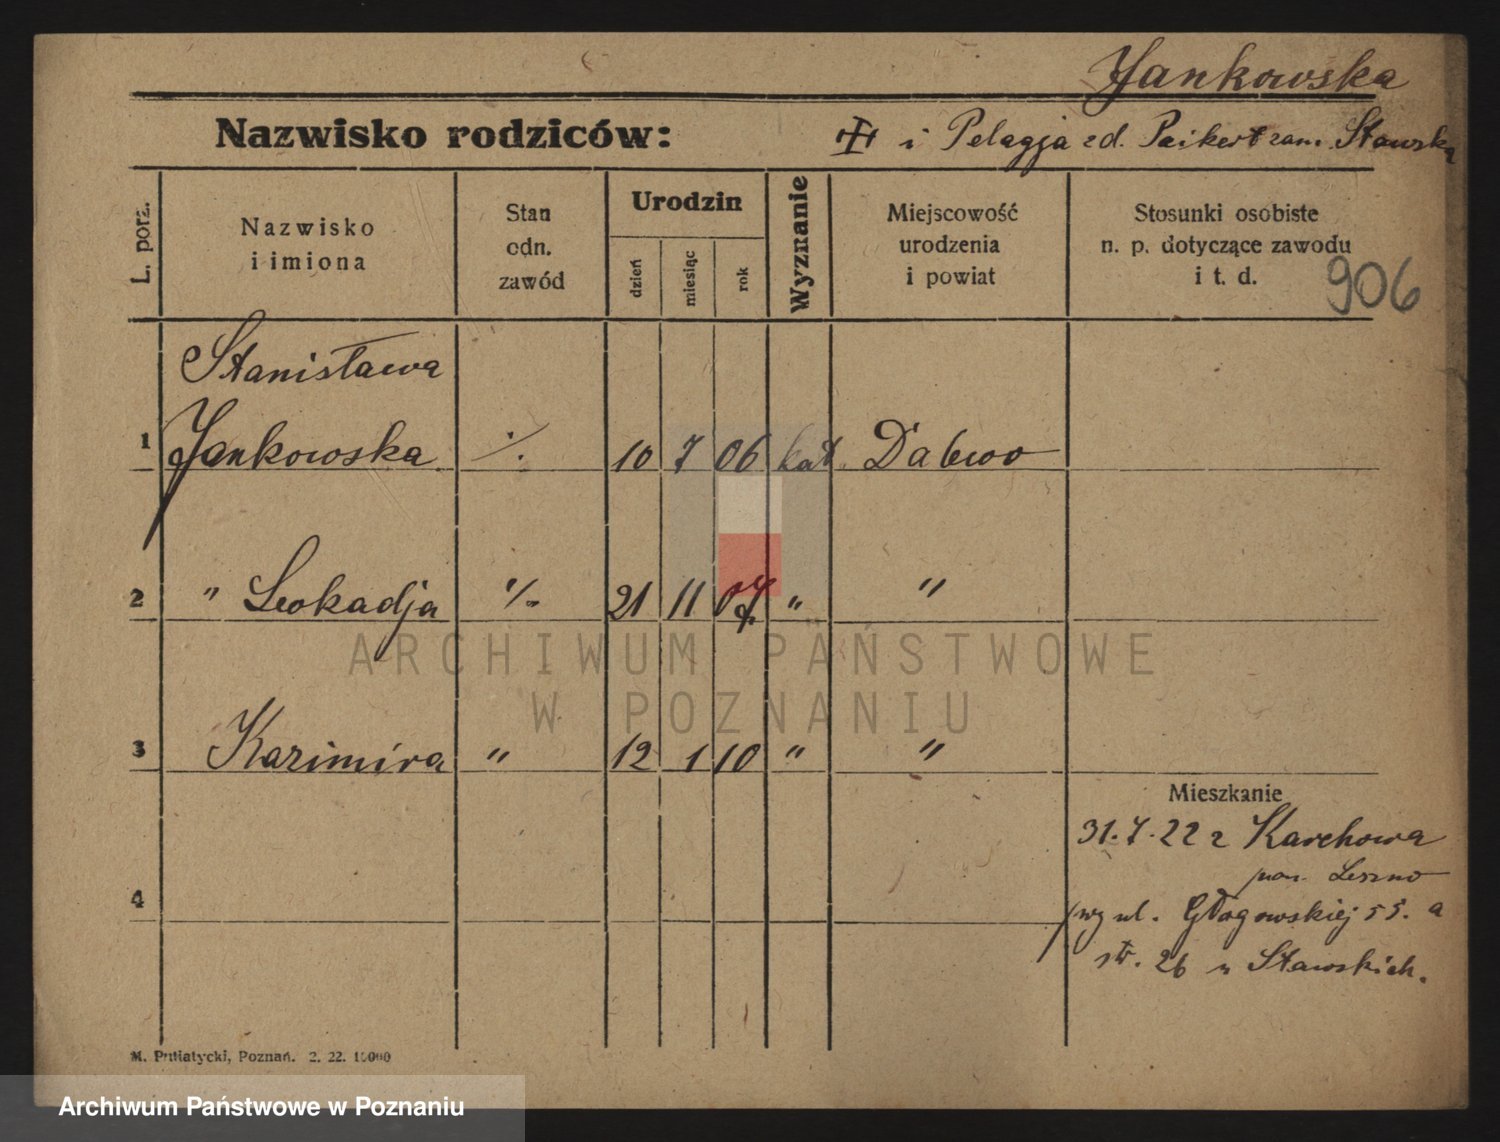 Jankowska
Nazwisko rodziców: i Pelagja zd. Peikert zam. Stawska
L. porz.
Nazwisko i imiona
Stan odn. zawód
Urodzin
dzień miesiąc rok
Wyznanie
Miejscowość urodzenia i powiat
Stosunki osobiste n. p. dotyczące zawodu i t. d.
906
Stanisława
1 Jankowska ./. 10 7 06 kat. Dabwo
2 " Leokadja ./. 21 11 07 " "
3 Kazimira " 12 1 10 " "
Mieszkanie
31.7.22 z Karchowa
pow. Leszno
4
ul. Głogowskiej 55. a
str. 26 u Stawskich.
M. Putiatycki, Poznań. 2. 22. 10000
ARCHIWUM PAŃSTWOWE
W POZNANIU
Archiwum Państwowe w Poznaniu